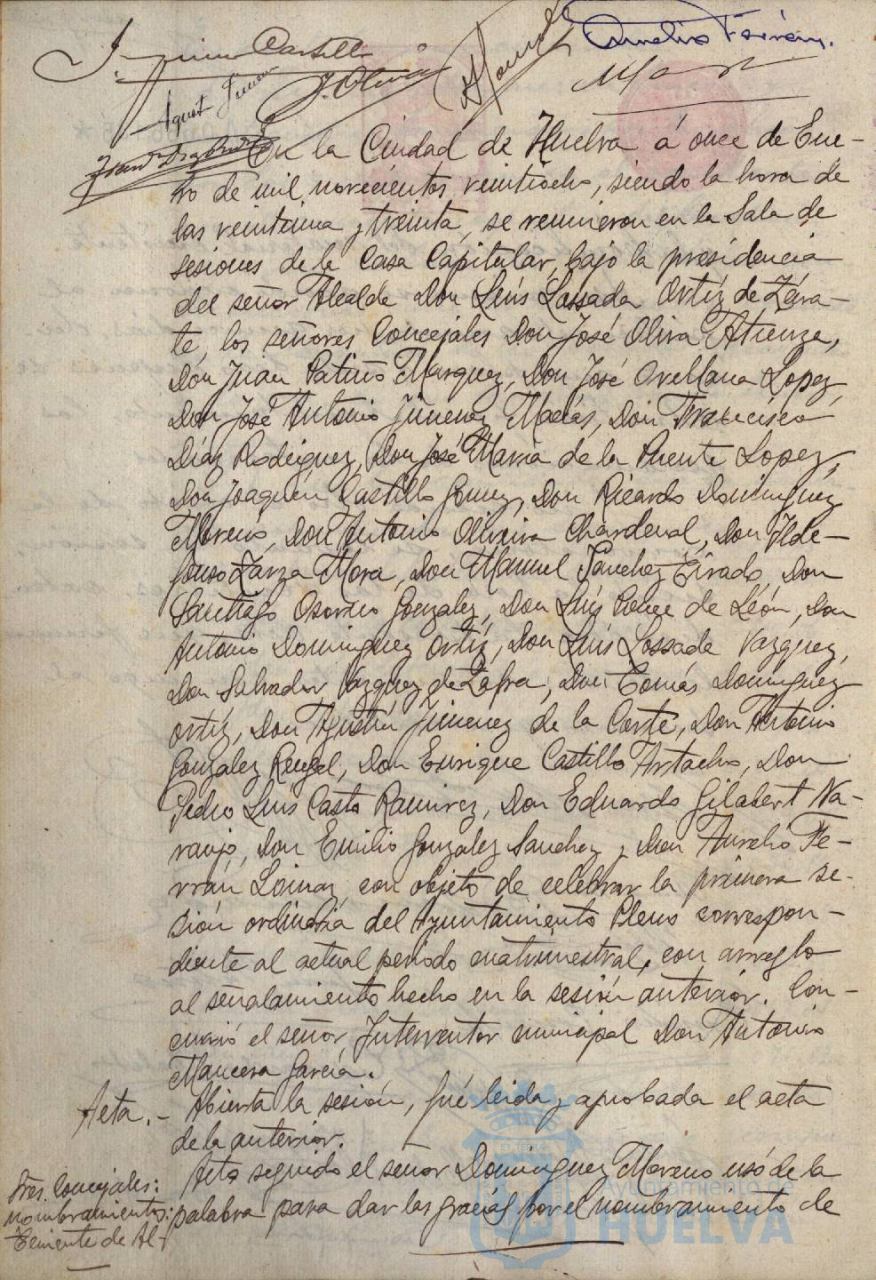 Joaquin Castillo
J. Oliva
Aurelio Ferrán.
Agust Jimenez
En la Ciudad de Huelva á once de Ene-
ro de mil novecientos veintiocho, siendo la hora de
las veintiuna y treinta, se reunieron en la Sala de
sesiones de la Casa Capitular, bajo la presidencia
del señor Alcalde Don Luís Lossada Ortíz de Zára-
te, los señores Concejales Don José Oliva Atienza,
Don Juan Patiño Marquez, Don José Orellana Lopez,
Don José Antonio Jimenez Macías, Don Francisco
Díaz Rodriguez, Don José María de la Puente Lopez,
Don Joaquín Castillo Gomez, Don Ricardo Dominguez
Moreno, Don Antonio Oliveira Chardenal, Don Ilde-
fonso Zarza Mora, Don Manuel Sanchez Tirado, Don
Santiago Osorno Gonzalez, Don Luís Ponce de León, Don
Antonio Dominguez Ortíz, Don Luís Lossada Vazquez,
Don Salvador Vazquez de Zafra, Don Tomás Dominguez
Ortíz, Don Agustín Jimenez de la Corte, Don Antonio
Gonzalez Rengel, Don Enrique Castillo Artacho, Don
Pedro Luis Casto Ramirez, Don Eduardo Gilabert Na-
ranjo, Don Emilio Gonzalez Sanchez y Don Aurelio Fe-
rrán Loinaz con objeto de celebrar la primera se-
sión ordinaria del Ayuntamiento Pleno correspon-
diente al actual periodo cuatrimestral, con arreglo
al señalamiento hecho en la sesión anterior. Con-
currió el señor Interventor municipal Don Antonio
Mancera García.
Acta.- Abierta la sesión, fué leida y aprobada el acta
de la anterior.
Sres. Concejales:
nombramientos:
Teniente de Al-
Acto seguido el señor Dominguez Moreno usó de la
palabra para dar las gracias por el nombramiento de
Ayuntamiento de
HUELVA